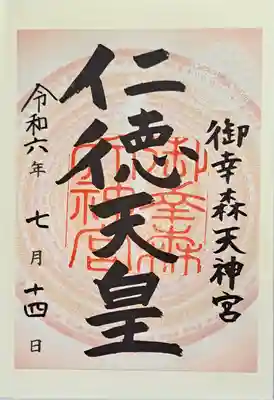 御幸森天神宮
仁徳天皇
御幸森
天神宮
令和六年 七月 十四日